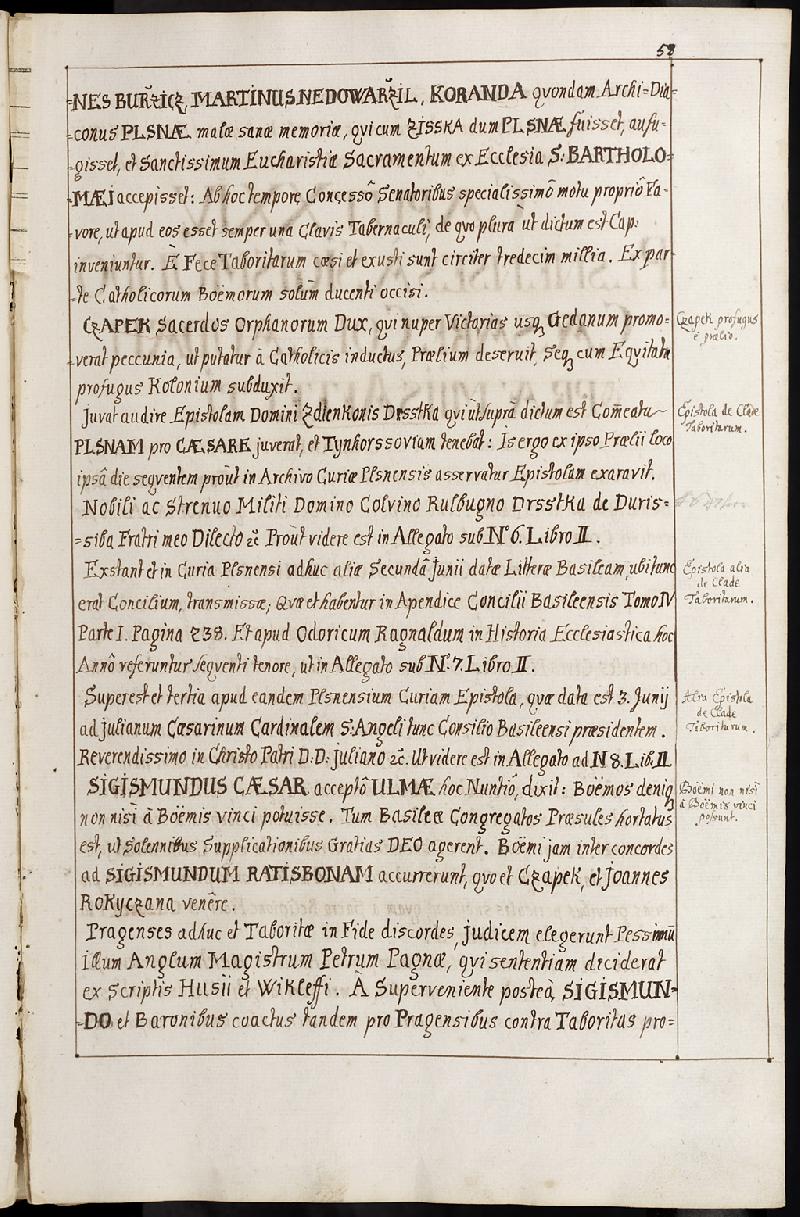 58
-NES BURZICZ, MARTINUS NEDOWARZIL, KORANDA qvondam Archi=Dia-
conus PLSNÆ malæ sanæ memoriæ, qvi cum ZISSKA dum PLSNÆ fuisset, aufu-
gisset, et Sanctissimum Eucharistiæ Sacramentum ex Ecclesia S: BARTHOLO-
MÆI accepisset: Ab hoc tempore Concessô Senatoribus specialissimô motu propriô Fa-
vore, ut apud eos esset semper una Clavis Tabernaculi, de qvo plura ut dictum est Cap:
inveniuntur. E Fece Taboritarum cæsi et exusti sunt circiter tredecim millia. Ex par-
te Catholicorum Boëmorum solùm ducenti occisi.
CZAPEK Sacerdos Orphanorum Dux, qvi nuper Victorias usq Gedanum promo-
verat peccunia, ut putatur à Catholicis inductus, Prælium deseruit, Seq cum Eqvitatu
profugus Kolonium subduxit.
Czapek profugus
è prælio.
Juvat audire Epistolam Domini Zdlenkonis Drsstka qvi ut suprà dictum est Com̃eatu
PLSNAM pro CÆSARE juverat, et Tynhorssoviam tenebat: Is ergo ex ipso Prælii loco
ipsâ die seqventem proùt in Archivo Curiæ Plsnensis asservatur Epistolam exaravit.
Epistola de Clade
Taboritarum.
Nobili ac Strenuo Militi Domino Colvino Rulbugno Drsstka de Duris=
=siba Fratri meo Dilecto &c Proùt videre est in Allegato sub No 6. Libro II.
Exstant et in Curia Plsnensi adhuc aliæ Secundâ Junii datæ Litteræ Basileam, ubi tunc
erat Concilium, transmissæ; Qvæ et habentur in Apendice Concilii Basileensis Tomo IV
Parte I. Pagina 238. Et apud Odoricum Raynaldum in Historia Ecclesiastica hoc
Annô referuntur seqventi tenore, ut in Allegato sub No 7. Libro II.
Epistola alia
de Clade
Taboritarum.
Superest et tertia apud eandem Plsnensium Curiam Epistola, qvæ data est 3. Junij
ad Julianum Cæsarinum Cardinalem S: Angeli tunc Consilio Basileensi præsidentem.
Reverendissimo in Christo Patri D. D: Juliano &c. Ut videre est in Allegato ad N 8. Lib. II
Alia Epistola
de Clade
Taboritarum.
SIGISMUNDUS CÆSAR acceptô ULMÆ hoc Nuntiô, dixit: Boëmos deniq
non nisi à Boëmis vinci potuisse. Tum Basileæ Congregatos Præsules hortatus
est, ut Solennibus Supplicationibus Gratias DEO agerent. Boëmi jam inter concordes
ad SIGISMUNDUM RATISBONAM accurrerunt, qvo et Czapek, et Joannes
Rokyczana venêre.
Boëmi non nisi
à Boëmis vinci
possunt.
Pragenses adhuc et Taboritæ in Fide discordes, judicem elegerunt Pessimũ
illum Anglum Magistrum Petrum Pagnæ, qvi sententiam diciderat
ex Scriptis Husii et Wikleffi. À Superveniente posteà SIGISMUN-
-DO et Baronibus coactus tandem pro Pragensibus contra Taboritas pro=